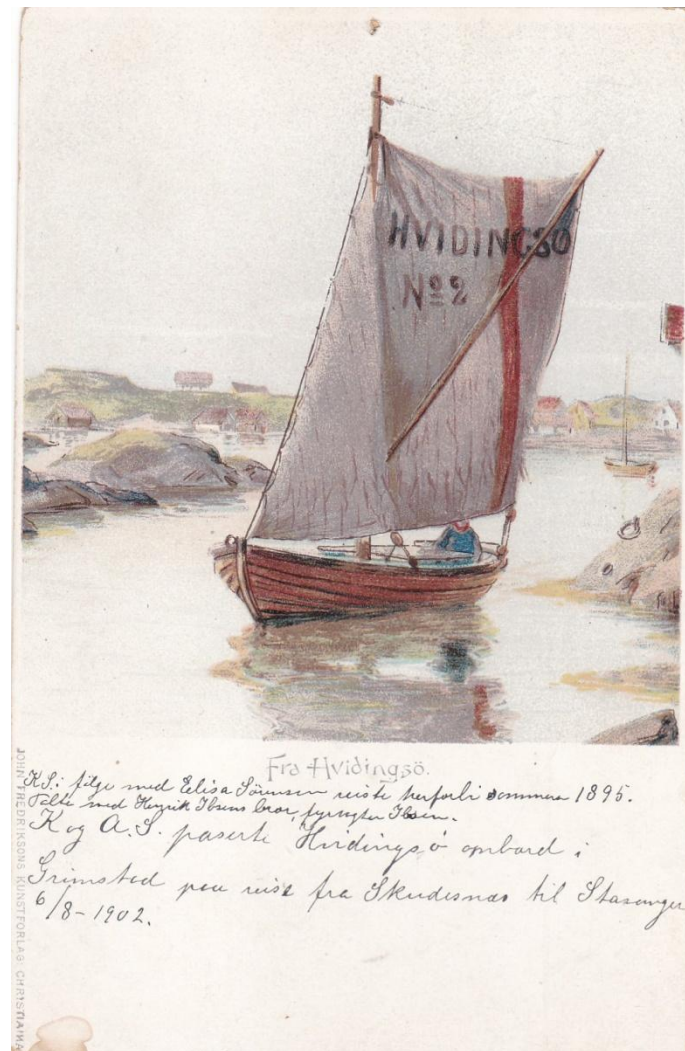 HVIDINGSÖ
Nº 2
Fra Hvidingsö.
K.S. i følge med Elisa Sørensen reiste herforbi sommeren 1895.
Talte med Henrik Ibsens bror, fyrvogter Ibsen.
K og A.S. paserte Hvidingsö ombord i
Grimstad paa reise fra Skudesnæs til Stavanger
6/8-1902.
JOHN FREDRIKSONS KUNSTFORLAG CHRISTIANIA